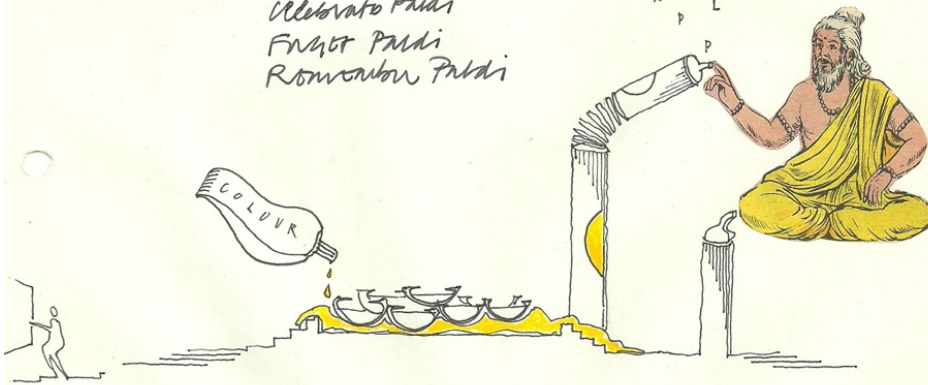 L
P
P
Celebrate Paldi
Forget Paldi
Remember Paldi
COLOUR